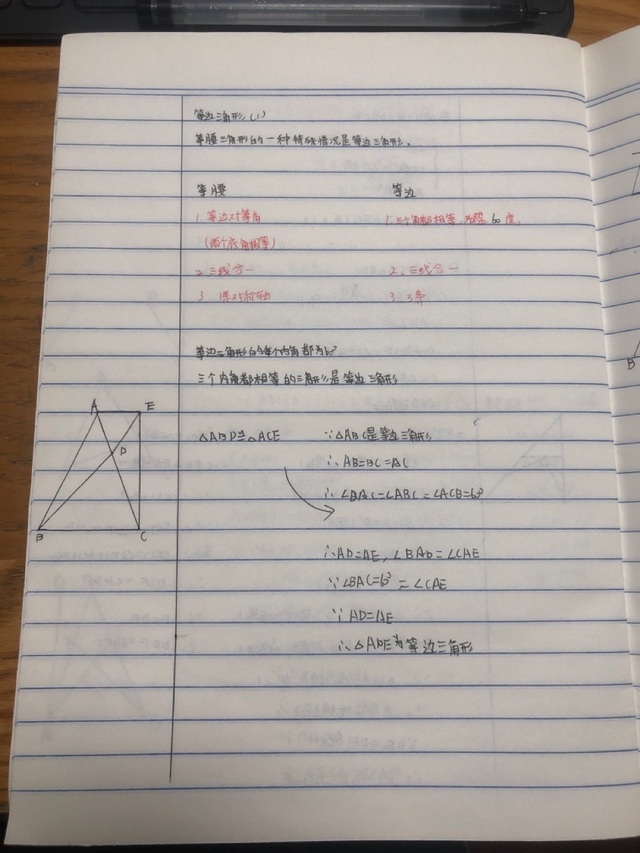 等边三角形(1)
等腰三角形的一种特殊情况是等边三角形.
等腰 等边
1. 等边对等角 1. 三个角都相等, 60度.
(两个底角相等)
2. 三线合一 2. 三线合一
3. 1条对称轴 3 3条
等边三角形的每个内角都为60°
三个内角都相等的三角形是等边三角形
A E
D
B C
△ABD≌△ACE ∵△ABC是等边三角形
∴AB=BC=AC
∴∠BAC=∠ABC=∠ACB=60°
∴AD=AE,∠BAD=∠CAE
∵∠BAC=60°=∠CAE
∵AD=AE
∴△ADE为等边三角形
B